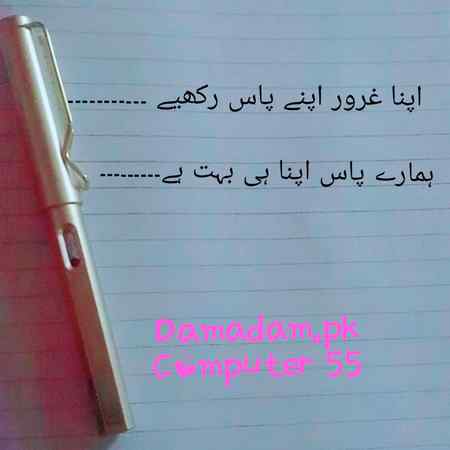 اپنا غرور اپنے پاس رکھیے -----------
ہمارے پاس اپنا ہی بہت ہے---------
Damadam.pk
Computer 55